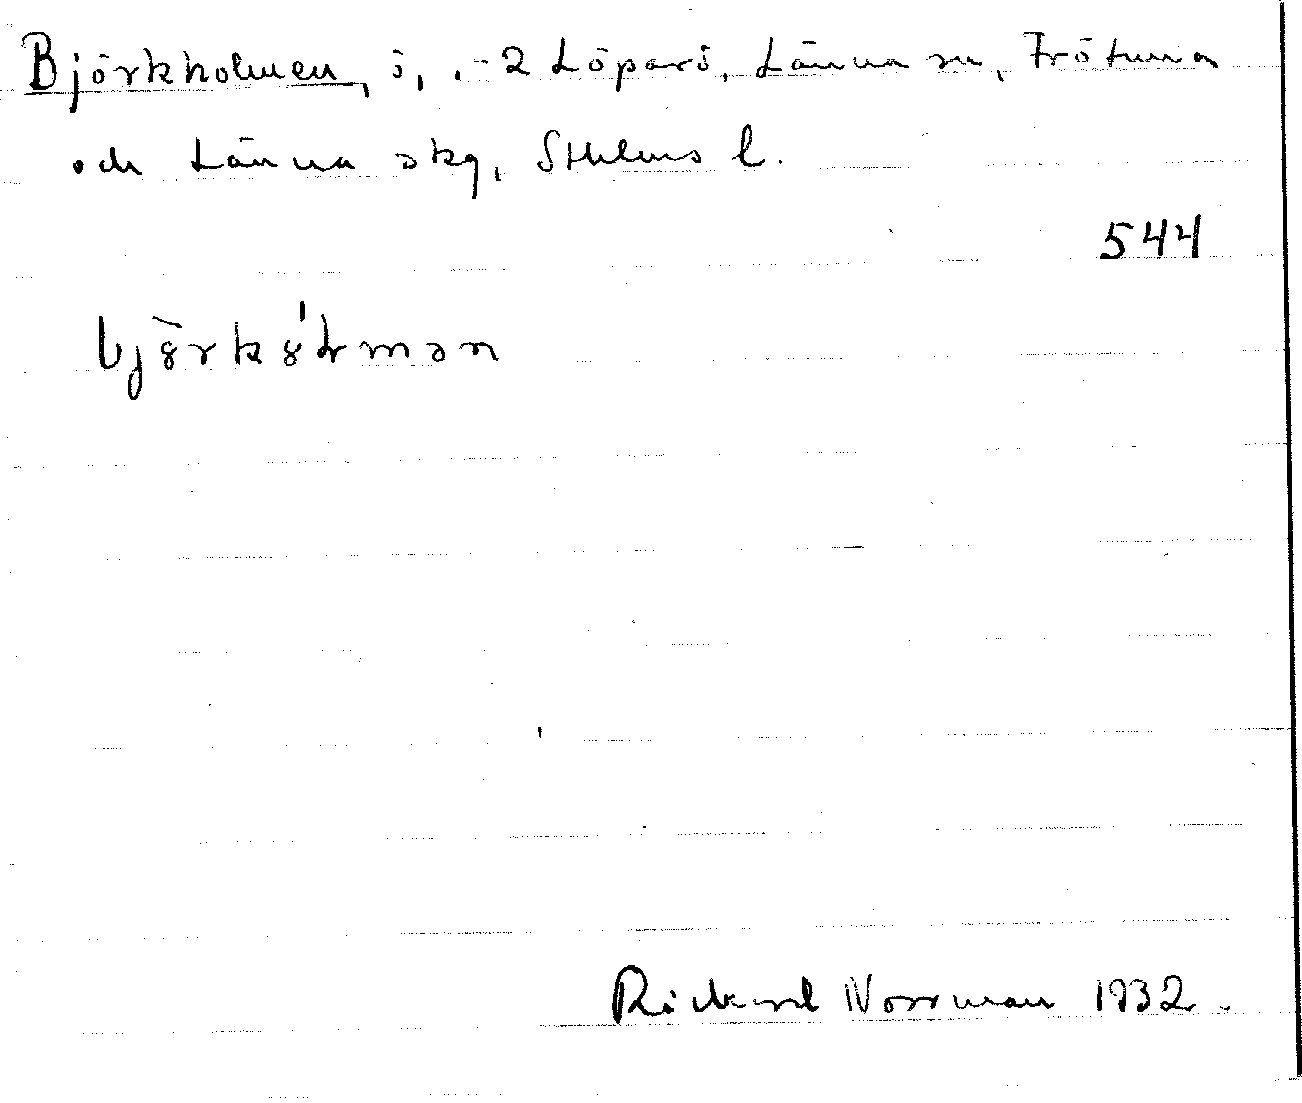 Björkholmen, ö, .-2 Löparö, Länna sn, Frötuna
och Länna skg, Sthlms l.
544
Rickard Norrman 1932.